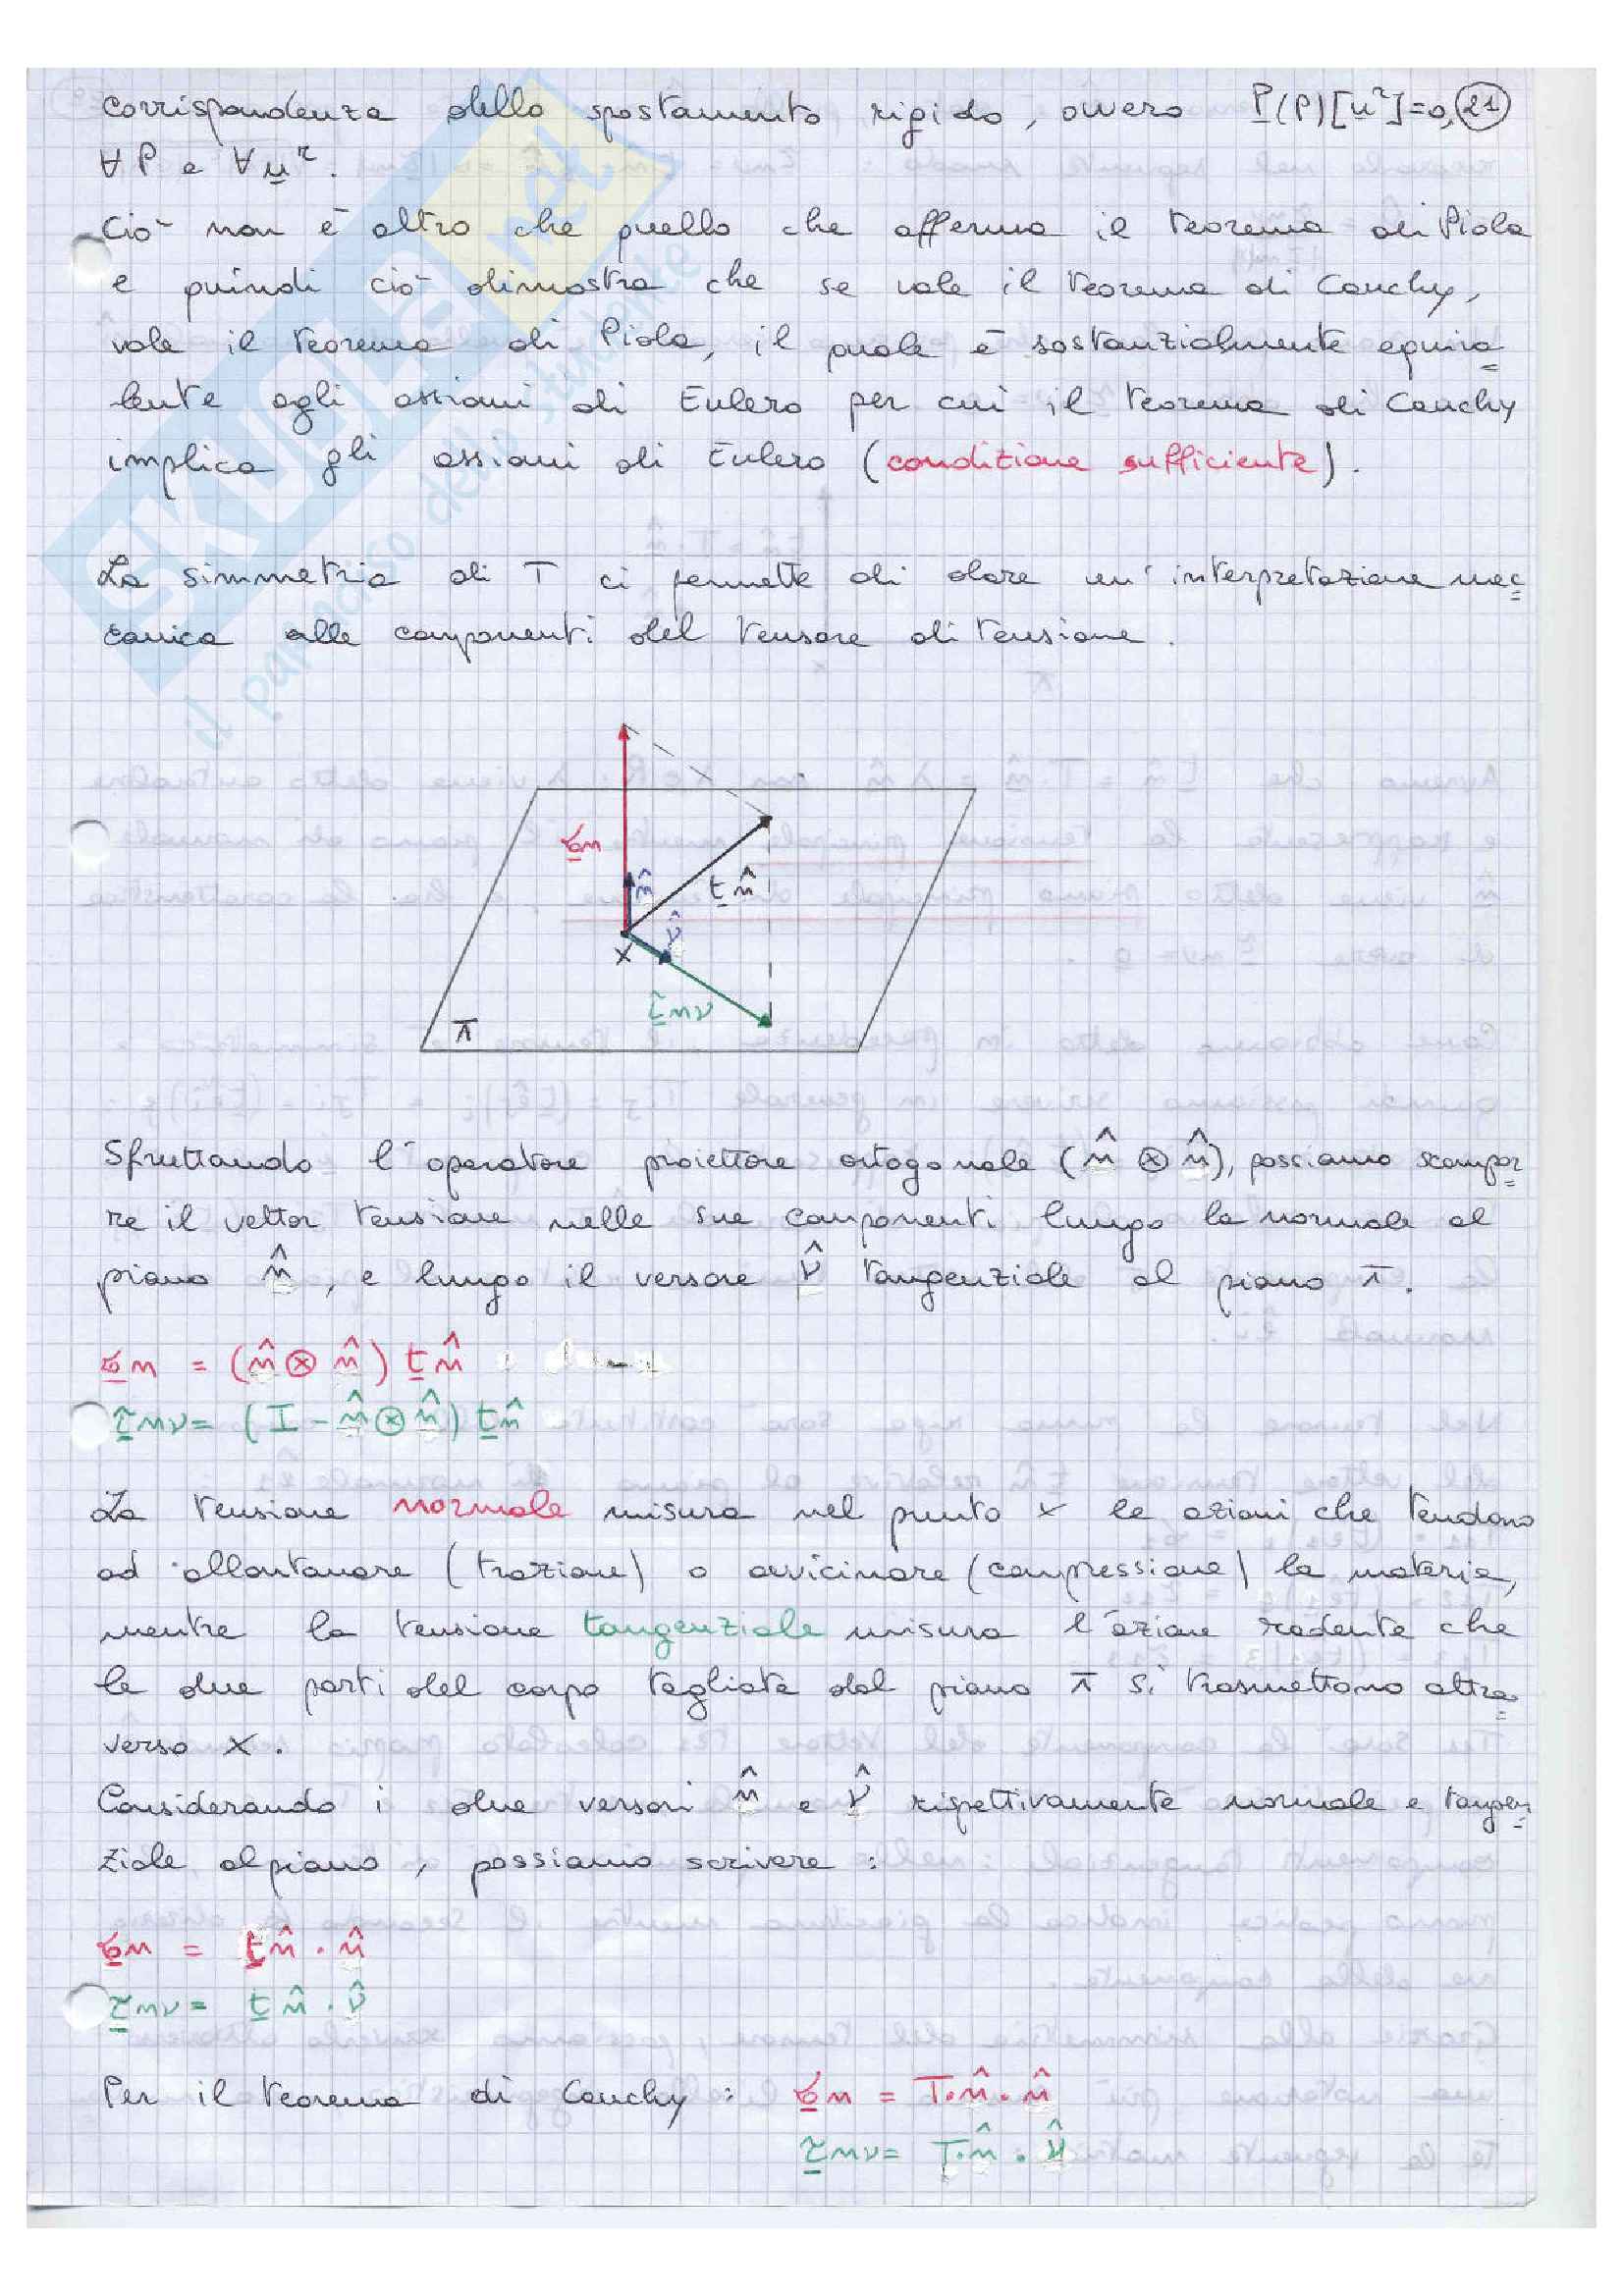 corrispondenza dello spostamento rigido, ovvero P(P)[uʳ]=0, 21
∀ P e ∀ uʳ.
Ciò non è altro che quello che afferma il teorema di Piola
e quindi ciò dimostra che se vale il teorema di Cauchy,
vale il teorema di Piola, il quale è sostanzialmente equiva
lente agli assiomi di Eulero per cui il teorema di Cauchy
implica gli assiomi di Eulero (condizione sufficiente).
La simmetria di T ci permette di dare un'interpretazione mec
canica alle componenti del tensore di tensione.
σn
n̂
t n̂
ν̂
x
τnν
π
Sfruttando l'operatore proiettore ortogonale (n̂ ⊗ n̂), possiamo scompor
re il vettor tensione nelle sue componenti lungo la normale al
piano n̂, e lungo il versore ν̂ tangenziale al piano π.
σn = (n̂ ⊗ n̂) t n̂
τnν = (I - n̂ ⊗ n̂) t n̂
La tensione normale misura nel punto x le azioni che tendono
ad allontanare (trazione) o avvicinare (compressione) la materia,
mentre la tensione tangenziale misura l'azione radente che
le due parti del corpo tagliate dal piano π si trasmettono attra
verso x.
Considerando i due versori n̂ e ν̂ rispettivamente normale e tangen
ziale al piano, possiamo scrivere:
σn = t n̂ · n̂
τnν = t n̂ · ν̂
Per il teorema di Cauchy: σn = T·n̂·n̂
τnν = T·n̂·ν̂
SKUOLA.net
il paradiso dello studente